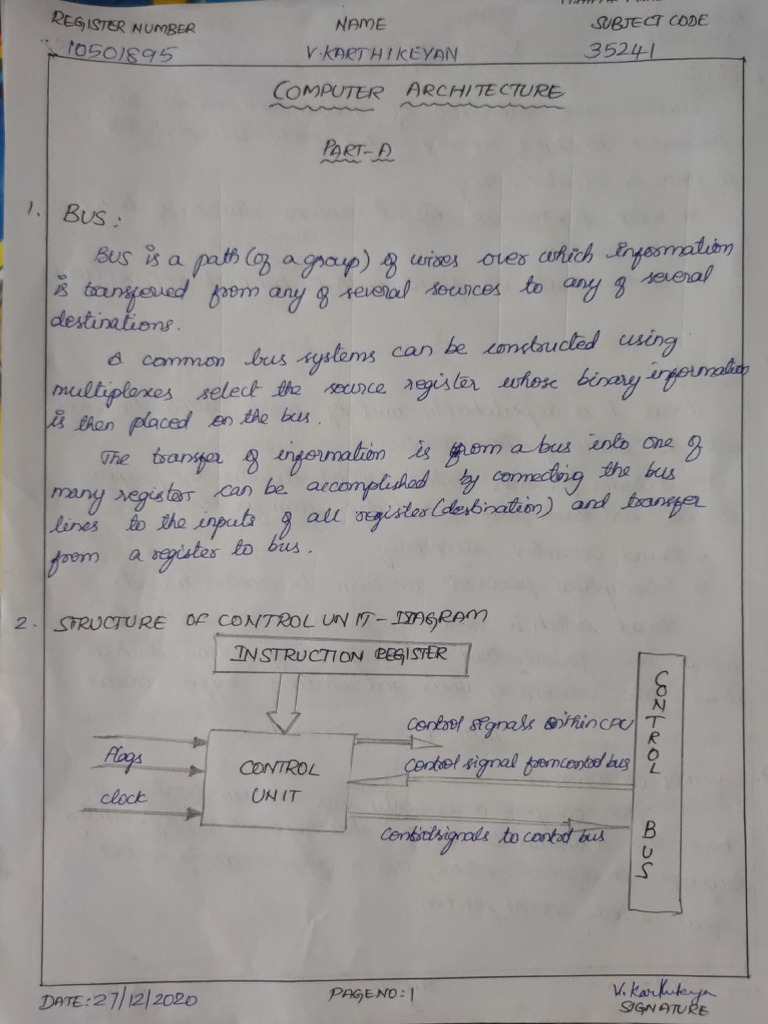 REGISTER NUMBER NAME SUBJECT CODE
10501895 V.KARTHIKEYAN 35241
COMPUTER ARCHITECTURE
PART-A
1. BUS:
BUS is a path (of a group) of wires over which information
is transferred from any of several sources to any of several
destinations.
A common bus systems can be constructed using
multiplexes select the source register whose binary information
is then placed on the bus.
The transfer of information is from a bus into one of
many register can be accomplished by connecting the bus
lines to the inputs of all register (destination) and transfer
from a register to bus.
2. STRUCTURE OF CONTROL UNIT-DIAGRAM
INSTRUCTION REGISTER
Control signals within CPU
Flags
CONTROL
UNIT
Control signal from control bus
clock
Control signals to control bus
CONTROL BUS
DATE: 27/12/2020 PAGE NO: 1 V. Karthikeyan
SIGNATURE